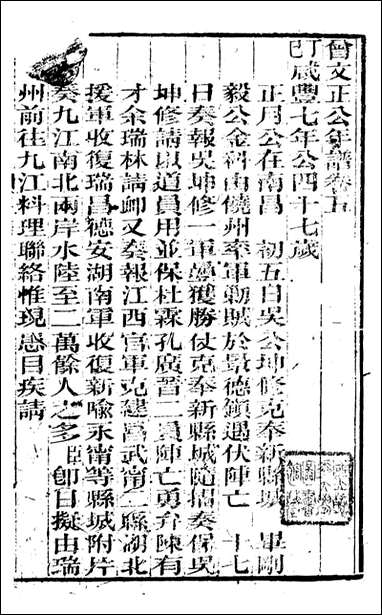 曾文正公年譜卷五
丁咸豐七年公四十七歲
正月公在南昌　初五日吳公坤修克奉新縣城　畢剛
毅公金科由饒州率軍勦賊於景德鎮遇伏陣亡　十七
日奏報吳坤修一軍屢獲勝仗克奉新縣城隨摺奏保吳
坤修請以道員用並保杜霖孔廣晉二員陣亡勇弁陳有
才余瑞林請卹又奏報江西官軍克建昌武甯二縣湖北
援軍收復瑞昌德安湖南軍收復新喻永甯等縣城附片
奏九江南北兩岸水陸至二萬餘人之多臣卽日擬由瑞
州前往九江料理聯絡惟現患目疾請